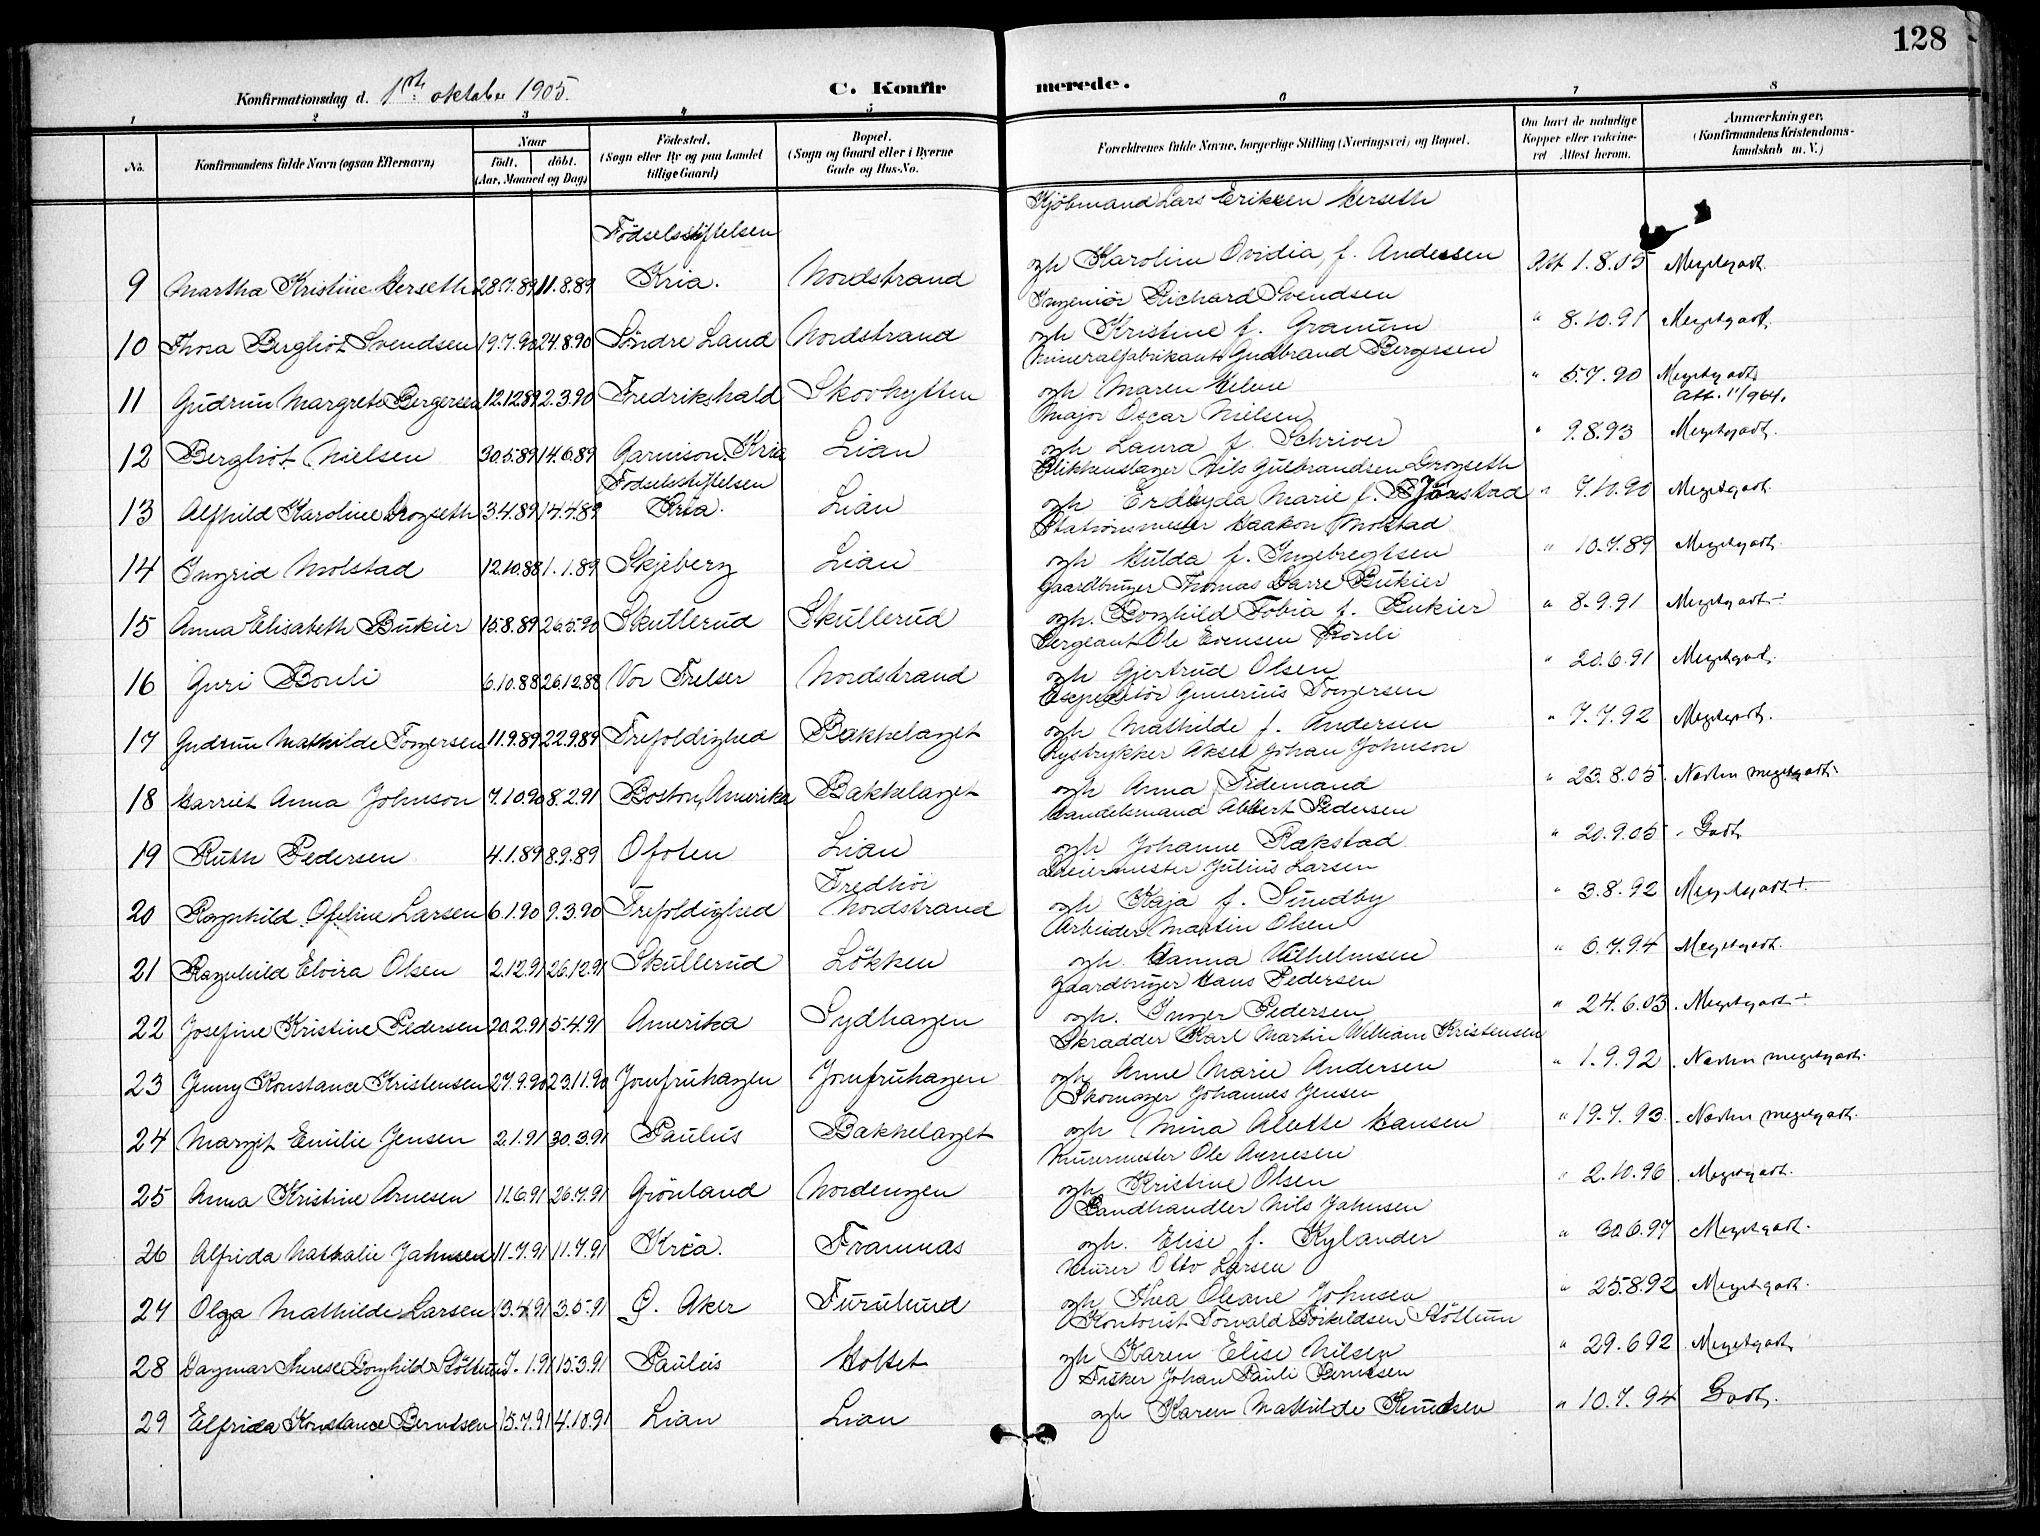 128
Konfirmationsdag d. 1ste oktober 1905. C. Konfirmerede.
1 2 3 4 5 6 7 8
No. Konfirmandens fulde Navn (ogsaa Efternavn) Naar født. døbt. (Aar, Maaned og Dag) Fødested. (Sogn eller By og paa Landet tillige Gaard) Bopæl. (Sogn og Gaard eller i Byerne Gade og Hus-No. Forældrenes fulde Navne, borgerlige Stilling (Næringsvei) og Bopæl. Om havt de naturlige Kopper eller vaccineret Attest herom. Anmærkninger, (Konfirmandens Kristendomskundskab m. V.)
Kjöbmand Lars Eriksen Herseth
Födselsstiftelsen
9 Martha Kristine Herseth 28.7.89 11.8.89 Kria. Nordstrand ogh Karoline Ovidia, f. Andersen Att 1.8.05 Megetgodt.
Ingeniör Richard Svendsen
10 Thora Bergliot Svendsen 19.7.90 24.8.90 Söndre Land Nordstrand ogh Kristine f. Granum " 8.10.91 Megetgodt.
Mineralfabrikant Gudbrand Bergersen
11 Gudrun Margrete Bergersen 12.12.89 2.3.90 Fredrikshald Skovhytten ogh Maren Helene " 5.7.90 Megetgodt
Att. 11/964.
Major Oscar Nielsen
12 Bergliot Nielsen 30.5.89 14.6.89 Garnison, Kria Lian ogh Laura f. Schriver " 9.8.93 Megetgodt.
Födselsstiftelsen Blikkenslager Nils Gulbrandsen Drogseth
13 Alfhild Karoline Drogseth 3.4.89 14.4.89 Kria. Lian ogh Marie f. " 7.10.90 Megetgodt.
Stationsmester Haakon Molstad
14 Ingrid Molstad 12.10.88 1.1.89 Skjeberg Lian ogh Hulda f. Ingebregtsen " 10.7.89 Megetgodt.
Gaardbruger Thomas Darre Bukier
15 Anna Elisabeth Bukier 15.8.89 26.5.90 Skullerud Skullerud ogh. Borghild Tobia f. Bukier " 8.9.91 Megetgodt ÷
Sergeant Ole Evensen Bonli
16 Guri Bonli 6.10.88 26.12.88 Vor Frelser Nordstrand ogh Gjertrud Olsen " 20.6.91 Megetgodt.
Expeditör Gunerius Torgersen
17 Gudrun Mathilde Torgersen 11.9.89 22.9.89 Trefoldighed Bakkelaget ogh Mathilde f. Andersen " 7.7.92 Megetgodt.
Aksel Johan Johnson
18 Harriet Anna Johnson 7.10.90 8.2.91 Boston, Amerika Bakkelaget ogh Anna Tidemand " 23.8.05 Næsten megetgodt.
Handelsmand Albert Pedersen
19 Ruth Pedersen 4.1.89 8.9.89 Ofoten Lian ogh Johanne Rakstad " 20.9.05 Godt
Fredhöi Dreiermester Julius Larsen
20 Ragnhild Ofeline Larsen 6.1.90 9.3.90 Trefoldighed Nordstrand ogh Kaja f. Sundby " 3.8.92 Megetgodt +
Arbeider Martin Olsen
21 Ragnhild Elvira Olsen 2.12.91 26.12.91 Skullerud Lökken ogh. Hanna Vilhelmsen " 6.7.94 Megetgodt.
Gaardbruger Hans Pedersen
22 Josefine Kristine Pedersen 20.2.91 5.4.91 Amerika Sydhagen ogh. Inger Pedersen " 24.6.03 Megetgodt ÷
Skrædder Karl Martin William Kristensen
23 Jenny Konstance Kristensen 27.9.90 23.11.90 Jomfruhagen Jomfruhagen ogh Anne Marie Andersen " 1.9.92 Næsten megetgodt.
Skomager Johannes Jensen
24 Margit Emilie Jensen 2.1.91 30.3.91 Paulus Bakkelaget ogh Mina Alette Hansen " 19.7.93 Næsten megetgodt.
Murermester Ole Arnesen
25 Anna Kristine Arnesen 11.6.91 26.7.91 Grönland Nordengen ogh Kristine Olsen " 2.10.96 Megetgodt.
Sandhandler Nils Jahnsen
26 Alfrida Nathalie Jahnsen 11.7.91 11.7.91 Kria. Framnæs ogh. Elise f. Kylander " 30.6.97 Megetgodt.
Murer Otto Larsen
27 Olga Mathilde Larsen 13.4.91 3.5.91 Ö. Aker Furulund ogh Thea Oleane Johnsen " 25.8.92 Megetgodt.
Kontorist Torvald Stöltum
28 Dagmar Therese Borghild Stöltum 7.1.91 15.3.91 Paulus Holtet ogh Karen Elise Nilsen " 29.6.92 Megetgodt.
Fisker Johan Pauli Berntsen
29 Elfrida Konstance Berntsen 15.7.91 4.10.91 Lian Lian ogh Karen Mathilde Knudsen " 10.7.94 Godt.